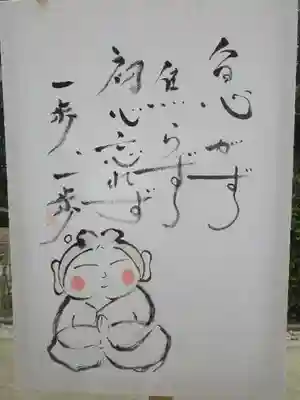 急がず
焦らず
初心忘れず
一歩、一歩